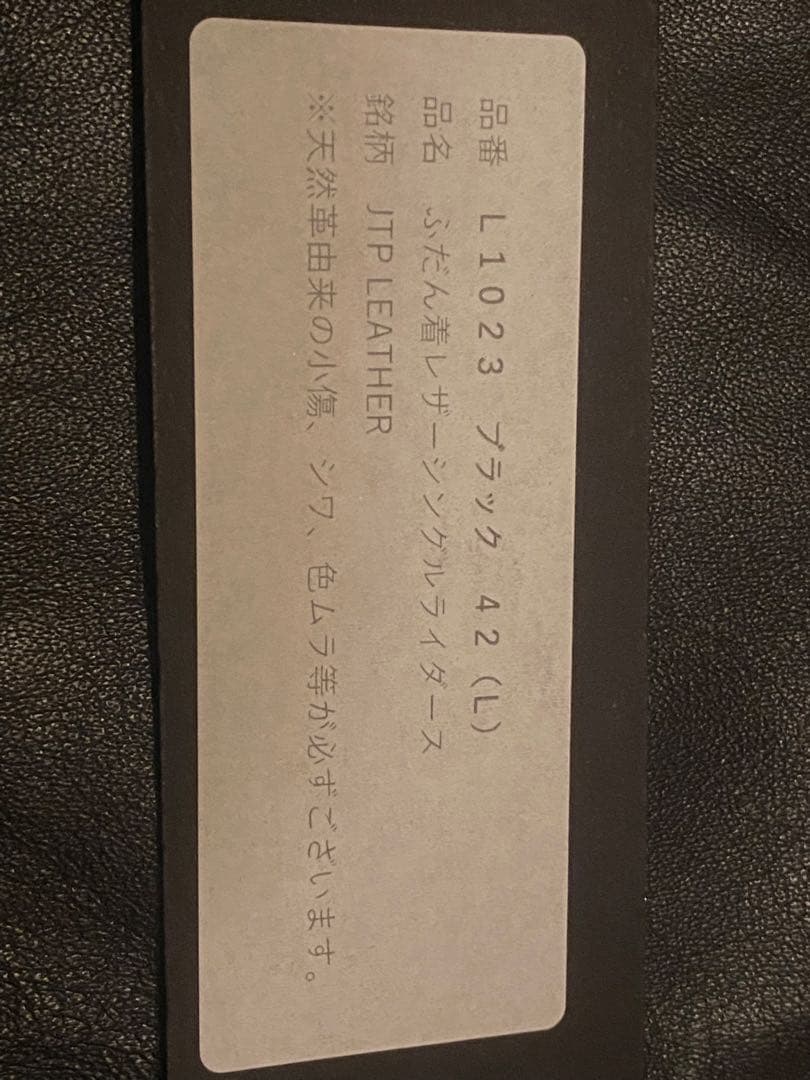 品番　L1023　ブラック　42(L)
品名　ふだん着レザーシングルライダース
銘柄　JTP LEATHER
※天然革由来の小傷、シワ、色ムラ等が必ずございます。